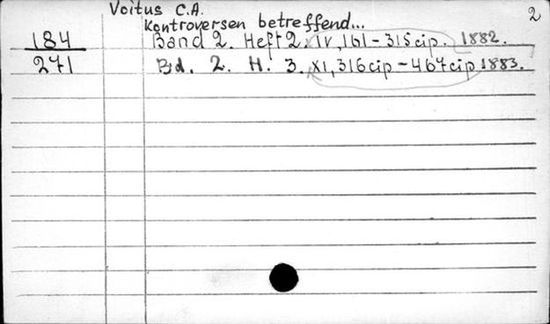 Voitus C.A. 2
Kontroversen betreffend...
184 Band 2. Heft 2. IV, 161-315 cip. 1882.
271 Bd. 2. H. 3. XI, 316 cip-467 cip 1883.